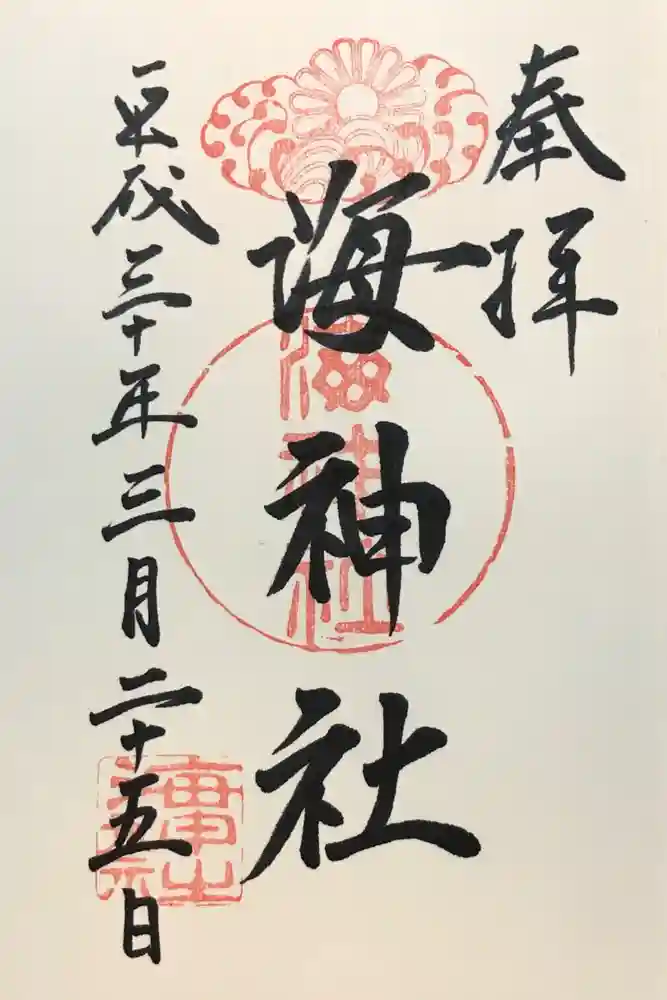 奉拝
海神社
海神社
平成三十年三月二十五日